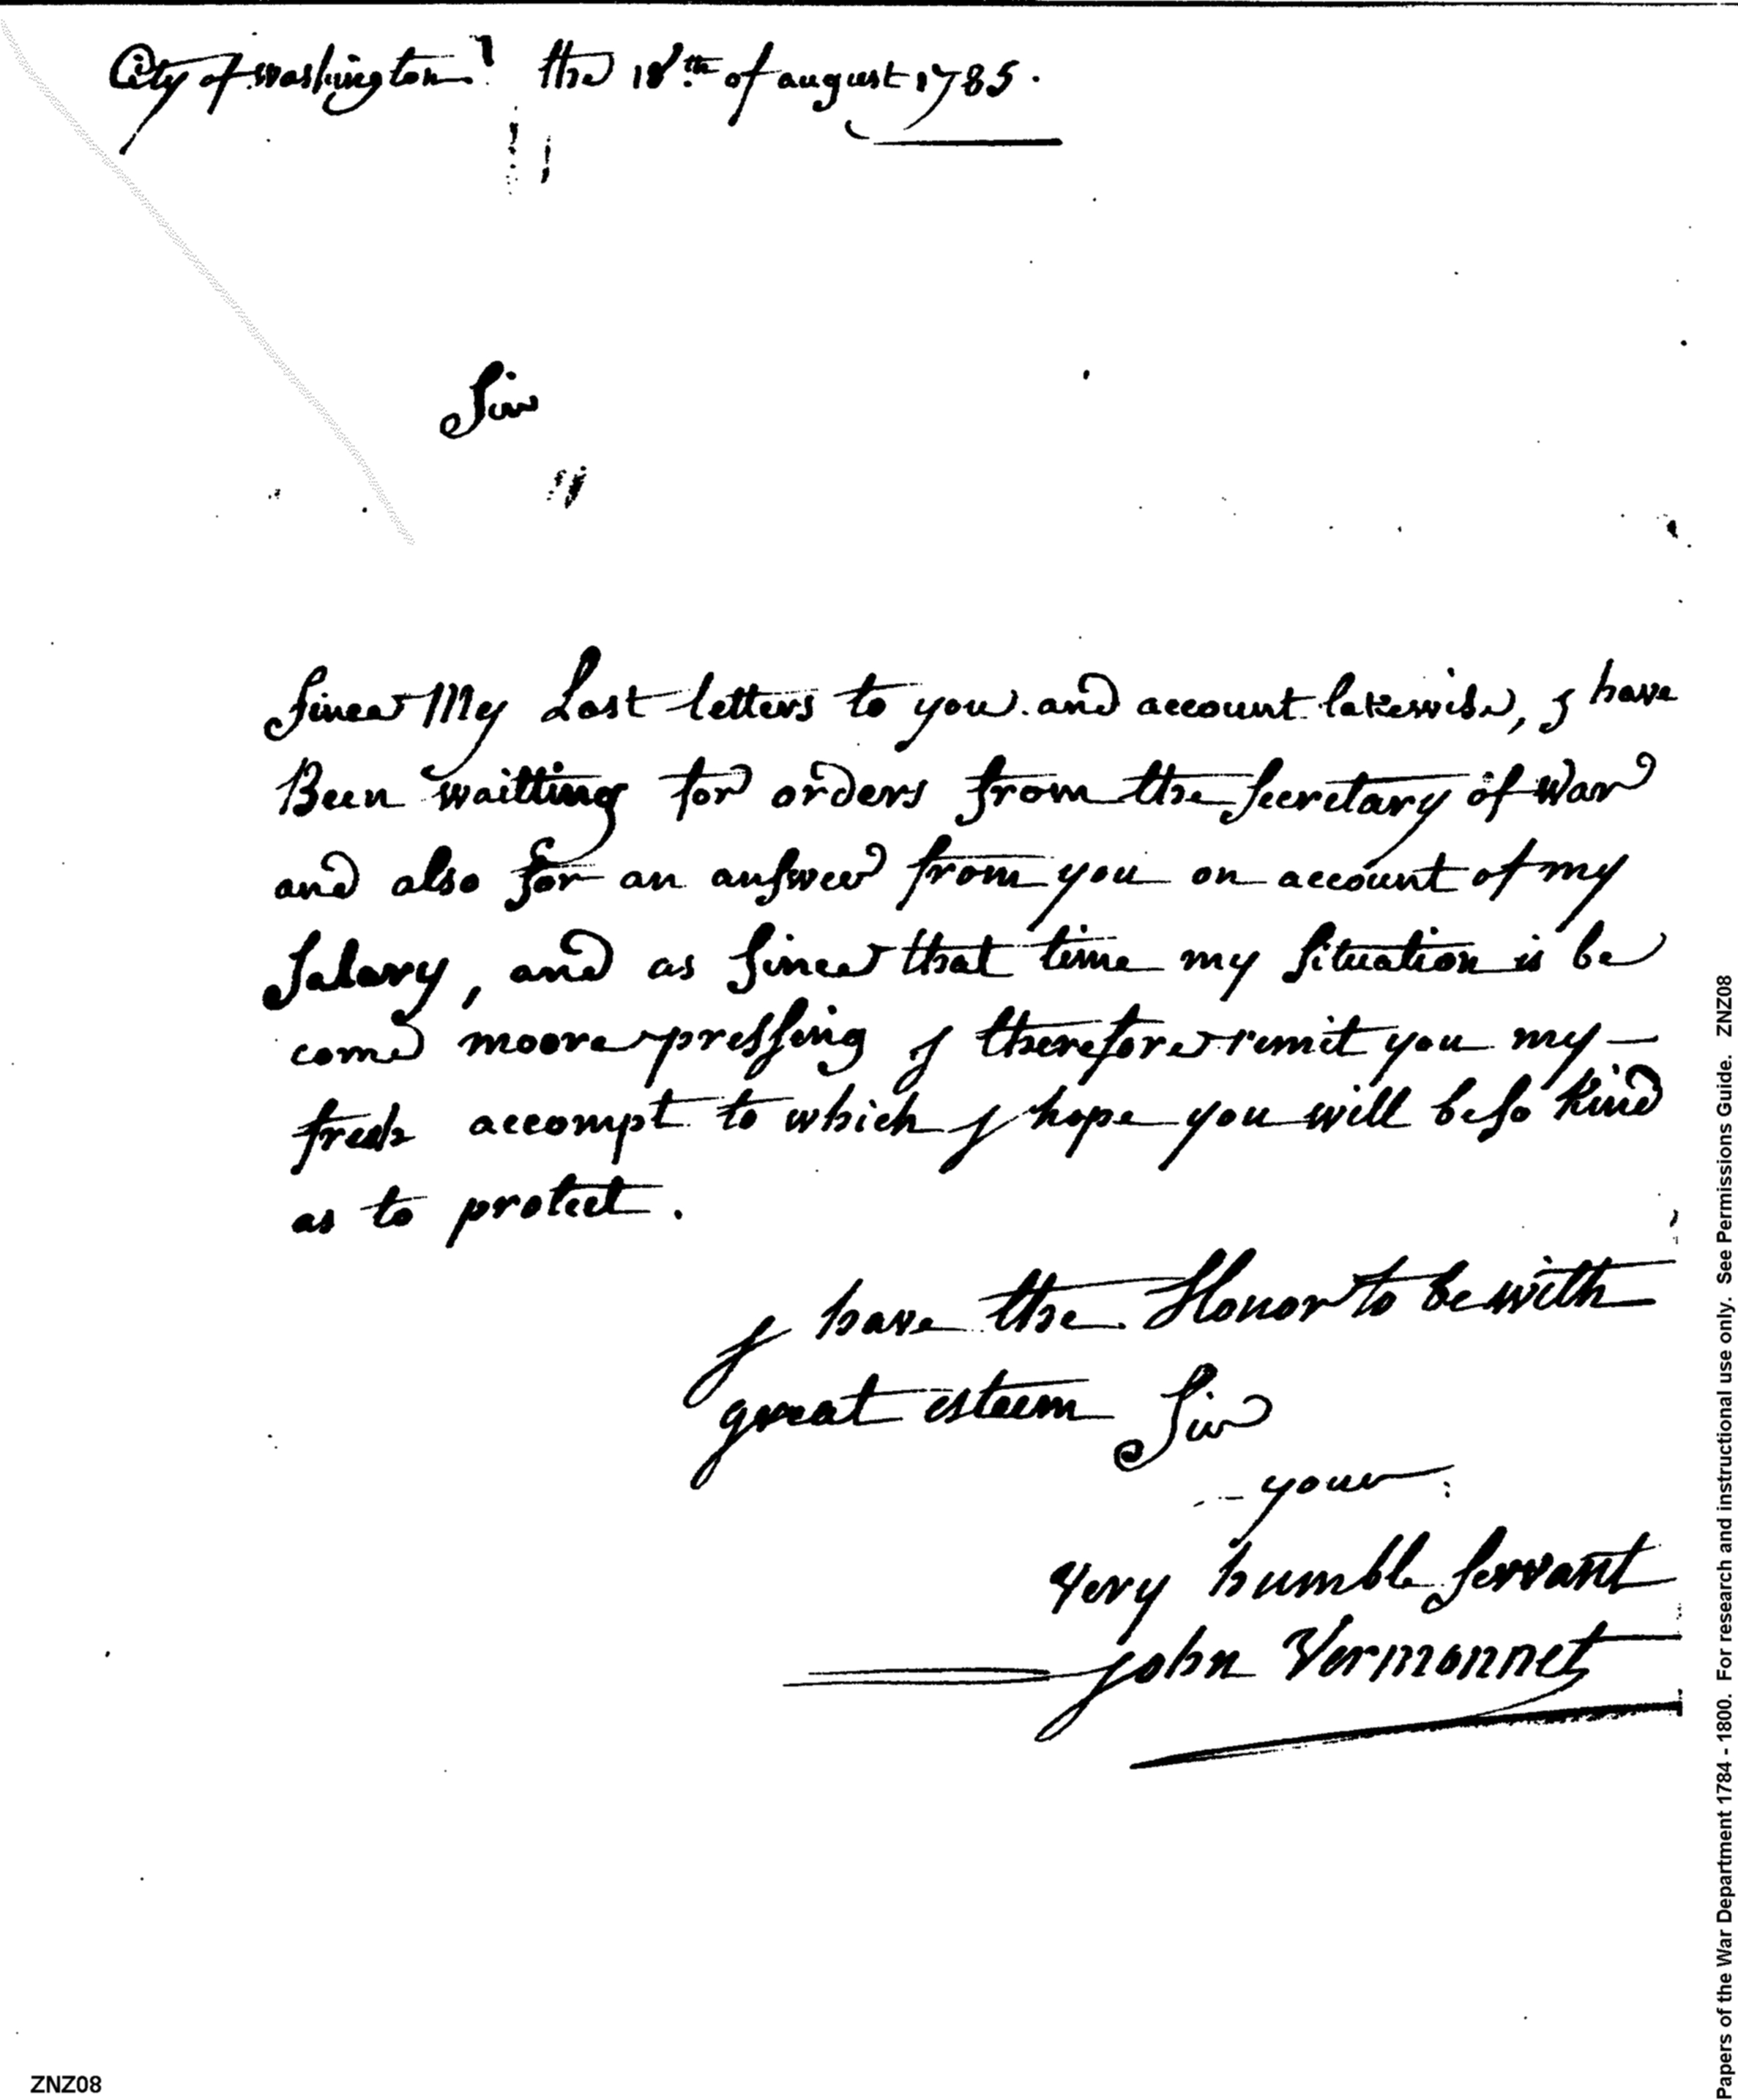 City of Washington the 18th of august 1785.
Sir
Since My Last letters to you and account lakewise, J have
Been waitting for orders from the Secretary of War
and also for an answer from you on account of my
Salary, and as Since that time my Situation is be
come moore pressing J therefore remit you my —
fresh accompt to which J hope you will be so kind
as to protect.
J have the Honor to be with
great esteem Sir
your
Very humble Servant
John Vermonnet
ZNZ08
Papers of the War Department 1784 - 1800. For research and instructional use only. See Permissions Guide. ZNZ08